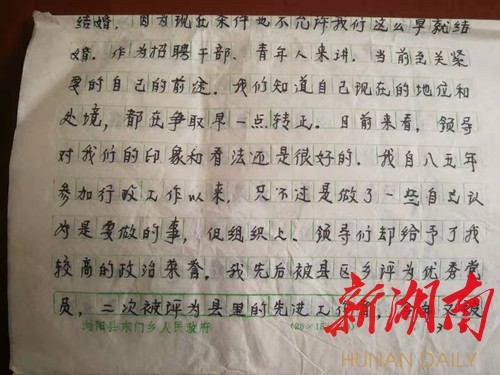 结婚。因为现在条件也不允许我们这么早就结
婚。作为招聘干部、青年人来讲。当前至关紧
要的自己的前途。我们知道自己现在的地位和
处境，都在争取早一点转正。目前来看，领导
对我们的印象和看法还是很好的。我自八五年
参加行政工作以来，只不过是做了一些自己认
为是要做的事，但组织上、领导们却给予了我
较高的政治荣誉。我先后被县区乡评为优秀党
员，二次被评为县里的先进工作者，今年又被
浏阳县东门乡人民政府
新湖南
HUNAN DAILY